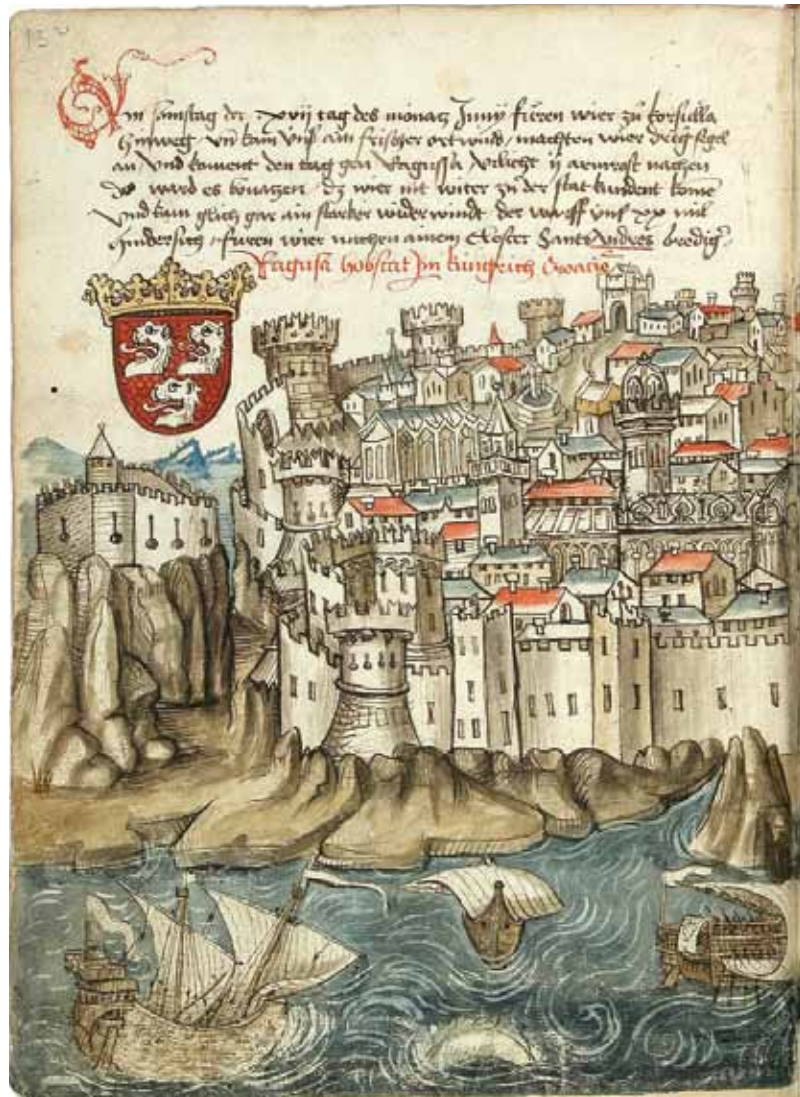 Am samstag der xvij tag des monatz Junij füren wier zü korsulla
hinweg vn̄ kam vnß ain frischer ort wind / machten wier segel
an / vnd koment den tag gen Ragussa ij armrost nachen
do ward es dz wir nit witer zü der stat kundent komē
vnd kam glich gar ain starker wider windt der warff vnß xx mil
hindersich / füren wier nachen ainem closter Sant Andres bredig
Ragusa hobstat Jn küngrich Croacie